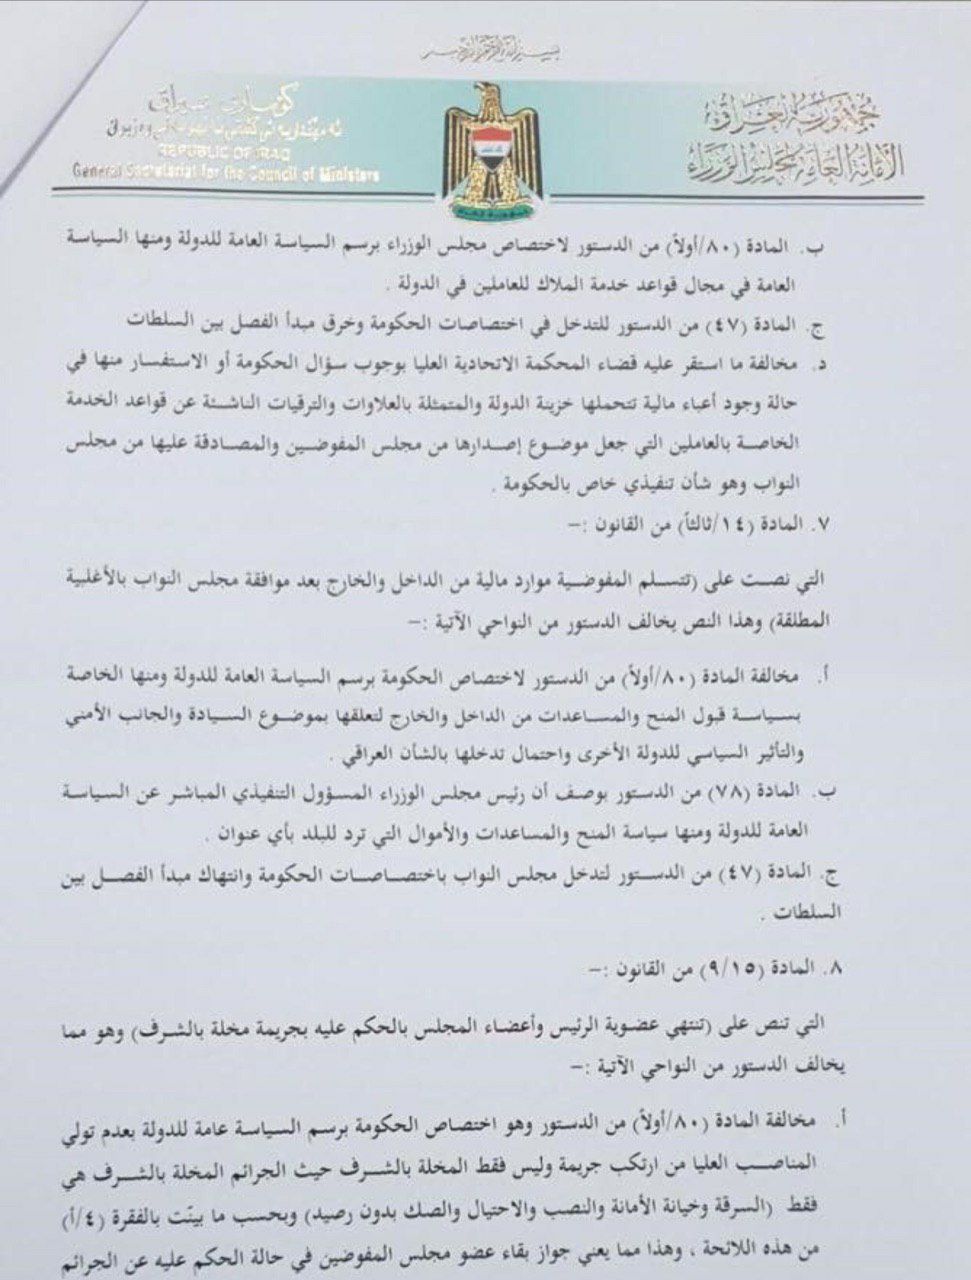 بسم الله الرحمن الرحيم
جمهورية العراق
الأمانة العامة لمجلس الوزراء
REPUBLIC OF IRAQ
General Secretariat for the Council of Ministers
ب. المادة (٨٠/أولاً) من الدستور لاختصاص مجلس الوزراء برسم السياسة العامة للدولة ومنها السياسة
العامة في مجال قواعد خدمة الملاك للعاملين في الدولة .
ج. المادة (٤٧) من الدستور للتدخل في اختصاصات الحكومة وخرق مبدأ الفصل بين السلطات
د. مخالفة ما استقر عليه قضاء المحكمة الاتحادية العليا بوجوب سؤال الحكومة أو الاستفسار منها في
حالة وجود أعباء مالية تتحملها خزينة الدولة والمتمثلة بالعلاوات والترقيات الناشئة عن قواعد الخدمة
الخاصة بالعاملين التي جعل موضوع إصدارها من مجلس المفوضين والمصادقة عليها من مجلس
النواب وهو شأن تنفيذي خاص بالحكومة .
٧. المادة (١٤/ثالثاً) من القانون :–
التي نصت على (تتسلم المفوضية موارد مالية من الداخل والخارج بعد موافقة مجلس النواب بالأغلبية
المطلقة) وهذا النص يخالف الدستور من النواحي الآتية :–
أ. مخالفة المادة (٨٠/أولاً) من الدستور لاختصاص الحكومة برسم السياسة العامة للدولة ومنها الخاصة
بسياسة قبول المنح والمساعدات من الداخل والخارج لتعلقها بموضوع السيادة والجانب الأمني
والتأثير السياسي للدولة الأخرى واحتمال تدخلها بالشأن العراقي .
ب. المادة (٧٨) من الدستور بوصف أن رئيس مجلس الوزراء المسؤول التنفيذي المباشر عن السياسة
العامة للدولة ومنها سياسة المنح والمساعدات والأموال التي ترد للبلد بأي عنوان .
ج. المادة (٤٧) من الدستور لتدخل مجلس النواب باختصاصات الحكومة وانتهاك مبدأ الفصل بين
السلطات .
٨. المادة (٩/١٥) من القانون :–
التي تنص على (تنتهي عضوية الرئيس وأعضاء المجلس بالحكم عليه بجريمة مخلة بالشرف) وهو مما
يخالف الدستور من النواحي الآتية :–
أ. مخالفة المادة (٨٠/أولاً) من الدستور وهو اختصاص الحكومة برسم السياسة عامة للدولة بعدم تولي
المناصب العليا من ارتكب جريمة وليس فقط المخلة بالشرف حيث الجرائم المخلة بالشرف هي
فقط (السرقة وخيانة الأمانة والنصب والاحتيال والصك بدون رصيد) وبحسب ما بيّنت بالفقرة (٤/أ)
من هذه اللائحة ، وهذا مما يعني جواز بقاء عضو مجلس المفوضين في حالة الحكم عليه عن الجرائم